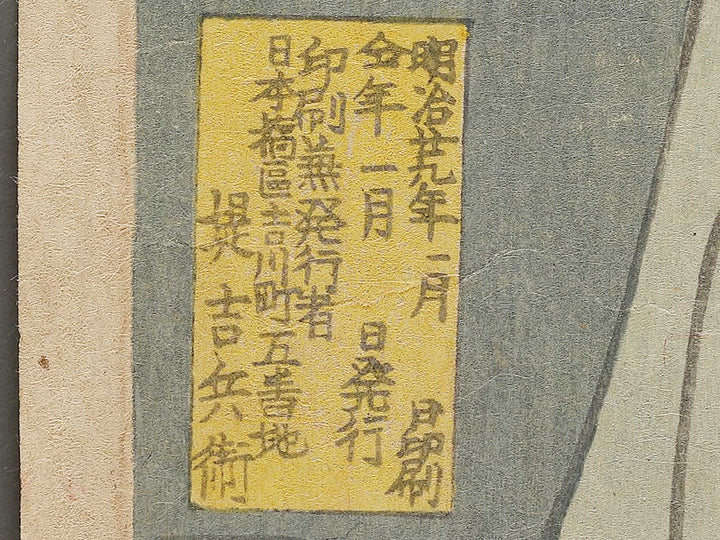 明治廿九年一月　日印刷
仝年一月　日発行
印刷兼発行者
日本橋區吉川町五番地
堤吉兵衛